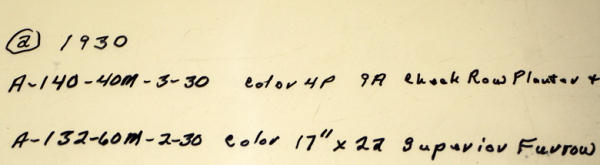 (a) 1930
A-140-40M-3-30 color 4P 9A Check Row Planter +
A-132-60M-2-30 color 17" x 22 Superior Furrow